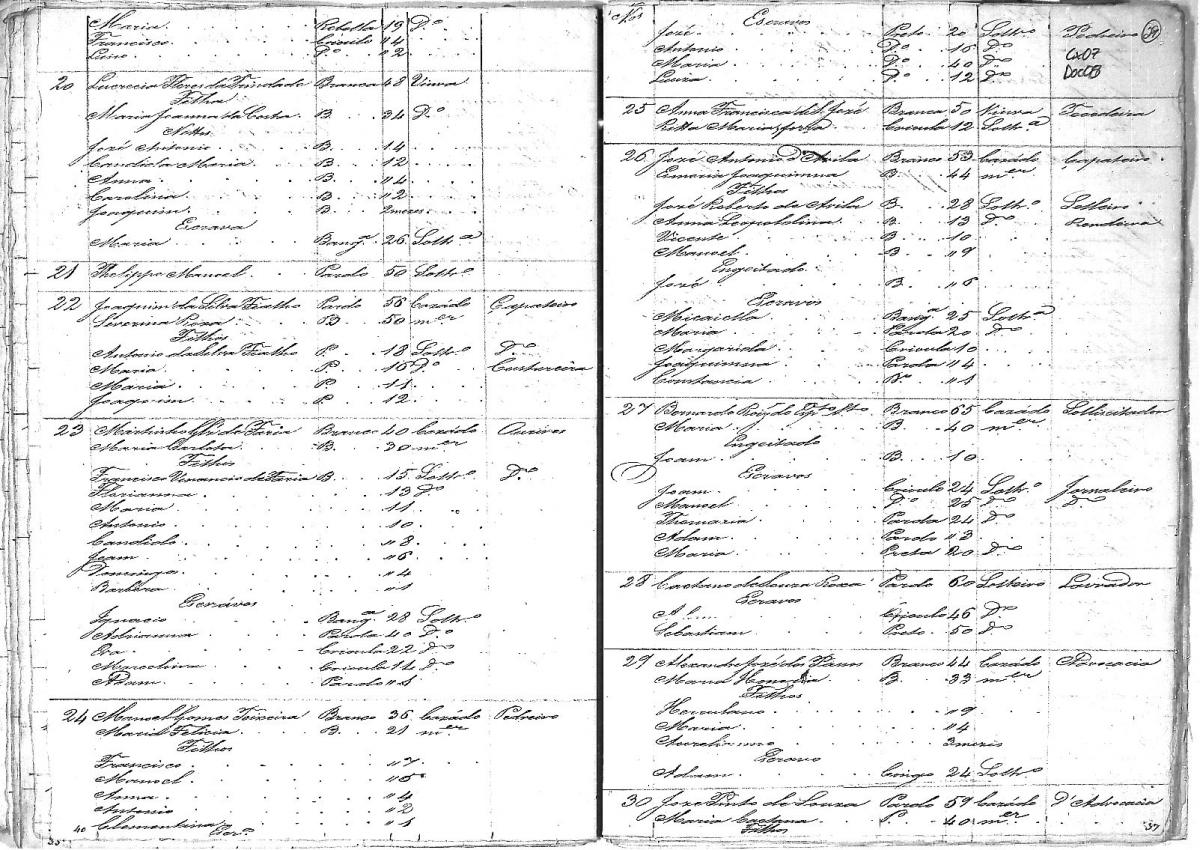 Maria 19 D.o
Francisco Crioulo "4
Luis D.o "2
20 Lucrecia Flores da Trindade Branca 48 Viuva
Filha
Maria Joanna da Costa B. 34 D.o
Nettos
José Antonio B. 14
Candida Maria B. 12
Anna B. "4
Carolina B. "2
Joaquim B. 2 mezes
Escrava
Maria Bang.a 26 Solt.a
21 Phelippe Manoel Pardo 50 Solt.o
22 Joaquim da Silva Fialho Pardo 56 Cazádo Çapateiro
Severina Roza B 50 m.er
Filhos
Antonio da Silva Fialho P. 18 Solt.o D.o
Maria P. 16 D.o Custureira
Maria P. 11
Joaquim P 12
23 Martinho de Faria Branco 40 Cazádo Ourives
Maria Carlota B. 30 m.er
Filhos
Francisco Venancio de Faria B 15 Solt.o D.o
Florianna 13 D.o
Maria 11
Antonio 10
Candido "8
Joam "6
Domingos "4
Barbara "1
Escrávos
Ignacio Bang.a 28 Solt.o
Adrianna Parda 40 D.o
Eva Crioula 22 D.o
Marcelina Crioula 14 D.o
Adam Pardo "1
24 Manoel Gomes Teixeira Branco 36 Cazádo Pedreiro
Maria Felicia B. 21 m.er
Filhos
Francisco "7
Manoel "5
Anna "4
Antonio "2
Clementina "1
40
35
N.os Escravos
José Preto 20 Solt.o Pedreiro 39
Antonio D.o 16 D.o
Maria D.o 40 D.o
Luiza D.o 12 D.o
CX07
DOC08
25 Anna Francisca de S. José Branca 50 Viuva Tecedeira
Ritta Maria forra Crioula 12 Solt.a
26 José Antonio d'Avila Branco 53 Cazádo Çapateiro
Joaquimna B. 44 m.er
Filhos
José Roberto de Avila B. 28 Solt.o Selleiro
Anna Leopoldina B 13 D.o Rendeira
Vicente B 10
Manoel B "9
Engeitado
José B. "6
Escravos
Micaella Bang.a 25 Solt.a
Maria Parda 20 D.o
Margarida Crioula 10
Joaquimna Parda "4
Constancia B.a "1
27 Bernardo Branco 65 Cazádo Sollicitador
Maria B. 40 m.er
Engeitado
Joam B. 10
Escravos
Joam Crioulo 24 Solt.o Jornaleiro
Manoel D.o 25 D.o D.o
Thomazia Parda 24 D.o
Adam Pardo "3
Maria Preta 20 D.o
28 Caetano de Souza Roza Pardo 60 Solteiro Lavrador
Escravos
Crioulo 46 D.o
Sebastiam Preto 50 D.o
29 Alexandre José dos Passos Branco 44 Cazádo Advocacia
Maria Honoria B. 33 m.er
Filhos
Herculano "9
Maria "4
Aurelianno 3 mezes
Escravo
Adam Congo 24 Solt.o
30 José Pinto de Souza Pardo 59 Cazádo D'Advocacia
Maria Caetana P. 40 m.er
Filhos
37